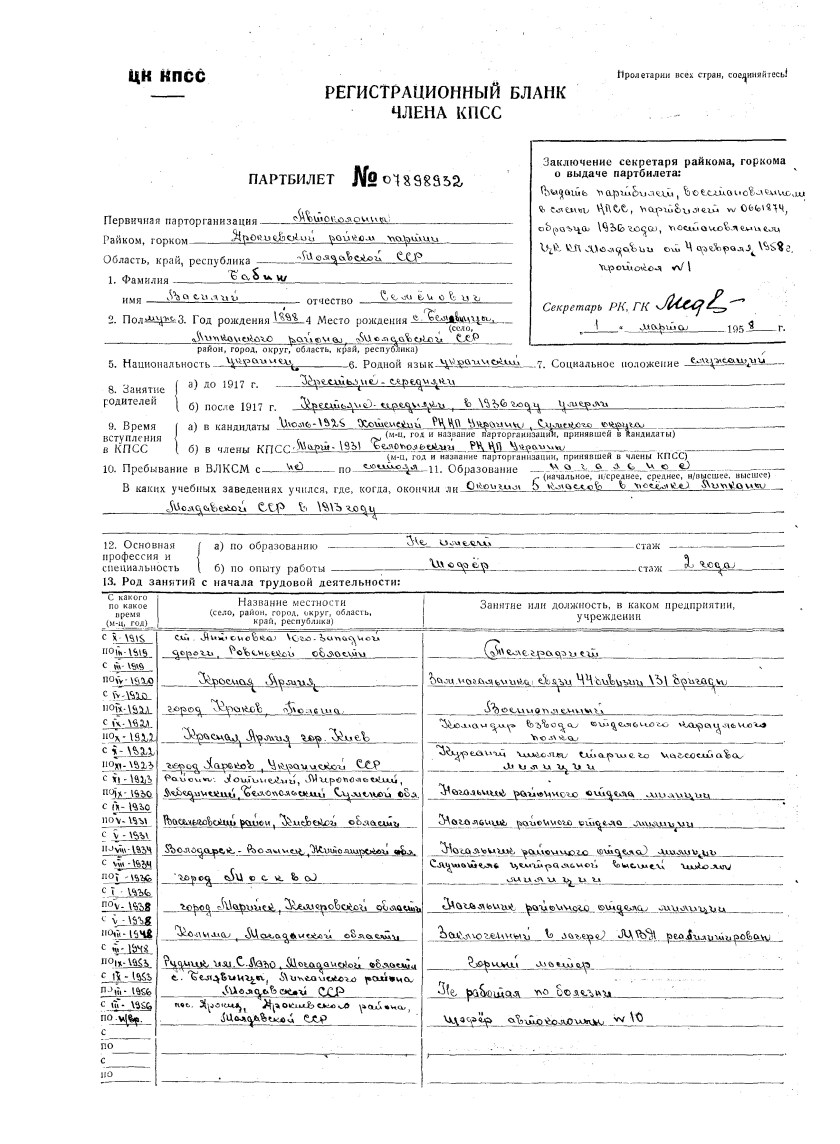 ЦК КПСС
Пролетарии всех стран, соединяйтесь!
РЕГИСТРАЦИОННЫЙ БЛАНК
ЧЛЕНА КПСС
ПАРТБИЛЕТ № 07898932
Заключение секретаря райкома, горкома
о выдаче партбилета:
Выдать партбилет, восстановленному
в члены КПСС, партбилет № 0661874,
образца 1936 года, постановлением
ЦК КП Молдавии от 4 февраля 1958 г.
протокол № 1
Секретарь РК, ГК
"1" марта 1958 г.
Первичная парторганизация Автоколонна
Райком, горком Дрокиевский райком партии
Область, край, республика Молдавской ССР
1. Фамилия Бабин
имя Василий отчество Семёнович
2. Пол муж 3. Год рождения 1898 4 Место рождения с. Белявинцы,
(село,
Липканского района, Молдавской ССР
район, город, округ, область, край, республика)
5. Национальность украинец 6. Родной язык украинский 7. Социальное положение служащий
8. Занятие родителей
а) до 1917 г. Крестьяне-середняки
б) после 1917 г. Крестьяне-середняки, в 1936 году умерли
9. Время вступления в КПСС
а) в кандидаты Июль-1925 Хотенский РК КП Украины, Сумского округа
(м-ц, год и название парторганизации, принявшей в кандидаты)
б) в члены КПСС: Март-1931 Белопольский РК КП Украины
(м-ц, год и название парторганизации, принявшей в члены КПСС)
10. Пребывание в ВЛКСМ с не по состоял 11. Образование начальное
(начальное, н/среднее, среднее, н/высшее, высшее)
В каких учебных заведениях учился, где, когда, окончил ли Окончил 5 классов в посёлке Липканы
Молдавской ССР в 1913 году
12. Основная профессия и специальность
а) по образованию Не имеет стаж
б) по опыту работы Шофёр стаж 2 года
13. Род занятий с начала трудовой деятельности:
С какого по какое время (м-ц, год)
Название местности
(село, район, город, округ, область, край, республика)
Занятие или должность, в каком предприятии, учреждении
с X-1915 ст. Антоновка Юго-Западной
по III-1919 дороги, Ровеньской области Телеграфист
с III-1919
по IV-1920 Красная Армия Зам. начальника связи 44 дивизии 131 бригады
с IV-1920
по IX-1921 город Краков, Польша Военнопленный
с IX-1921 Командир взвода отдельного караульного
по X-1922 Красная Армия гор. Киев полка
с X-1922 Курсант школы старшего начсостава
по XI-1923 город Харьков, Украинской ССР милиции
с XI-1923 Район: Хотинский, Миропольский,
по IX-1930 Лебединский, Белопольский Сумской обл. Начальник районного отдела милиции
с IX-1930
по V-1931 район, Киевской области Начальник районного отдела милиции
с V-1931
по VIII-1934 Володарск-Волынск, Житомирской обл. Начальник районного отдела милиции
с VIII-1934 Слушатель центральной высшей школы
по I-1936 город Москва милиции
с I-1936
по V-1938 город Марийск, Кемеровской области Начальник районного отдела милиции
с V-1938
по III-1948 Колыма, Магаданской области Заключенный в лагере МВД реабилитирован
с III-1948
по IX-1953 Рудник им. С.Лазо, Магаданской области Горный мастер
с IX-1953 с. Белявинцы, Липканского района
по III-1956 Молдавской ССР Не работал по болезни
с III-1956 пос. Дрокия, Дрокиевского района,
по н/вр. Молдавской ССР шофёр автоколонны № 10
с
по
с
по